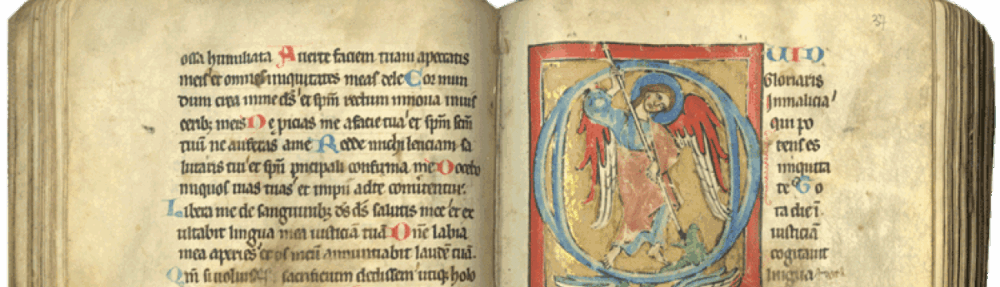 ossa humiliata Auerte faciem tuam apeccatis
meis et omnes iniquitates meas dele Cor mun
dum crea inme ds̄ et spm̄ rectum innoua inuis
cerib; meis Ne proicias me afacie tua et spm̄ scm̄
tuū ne auferas ame Redde michi leticiam sa
lutaris tui et spū principali confirma me Docebo
iniquos uias tuas et impii adte conuertentur.
Libera me de sanguinib; ds̄ ds̄ salutis mee et ex
ultabit lingua mea iusticiā tuā Dn̄e labia
mea aperies et os meū annuntiabit laudē tuā.
Qm̄ si uoluisses sacrificium dedissem utiq; holo
37
UID
Gloriaris
Inmalicia
qui po
tens es
iniquita
te To
ta die ī
iusticiā
cogitauit
lingua